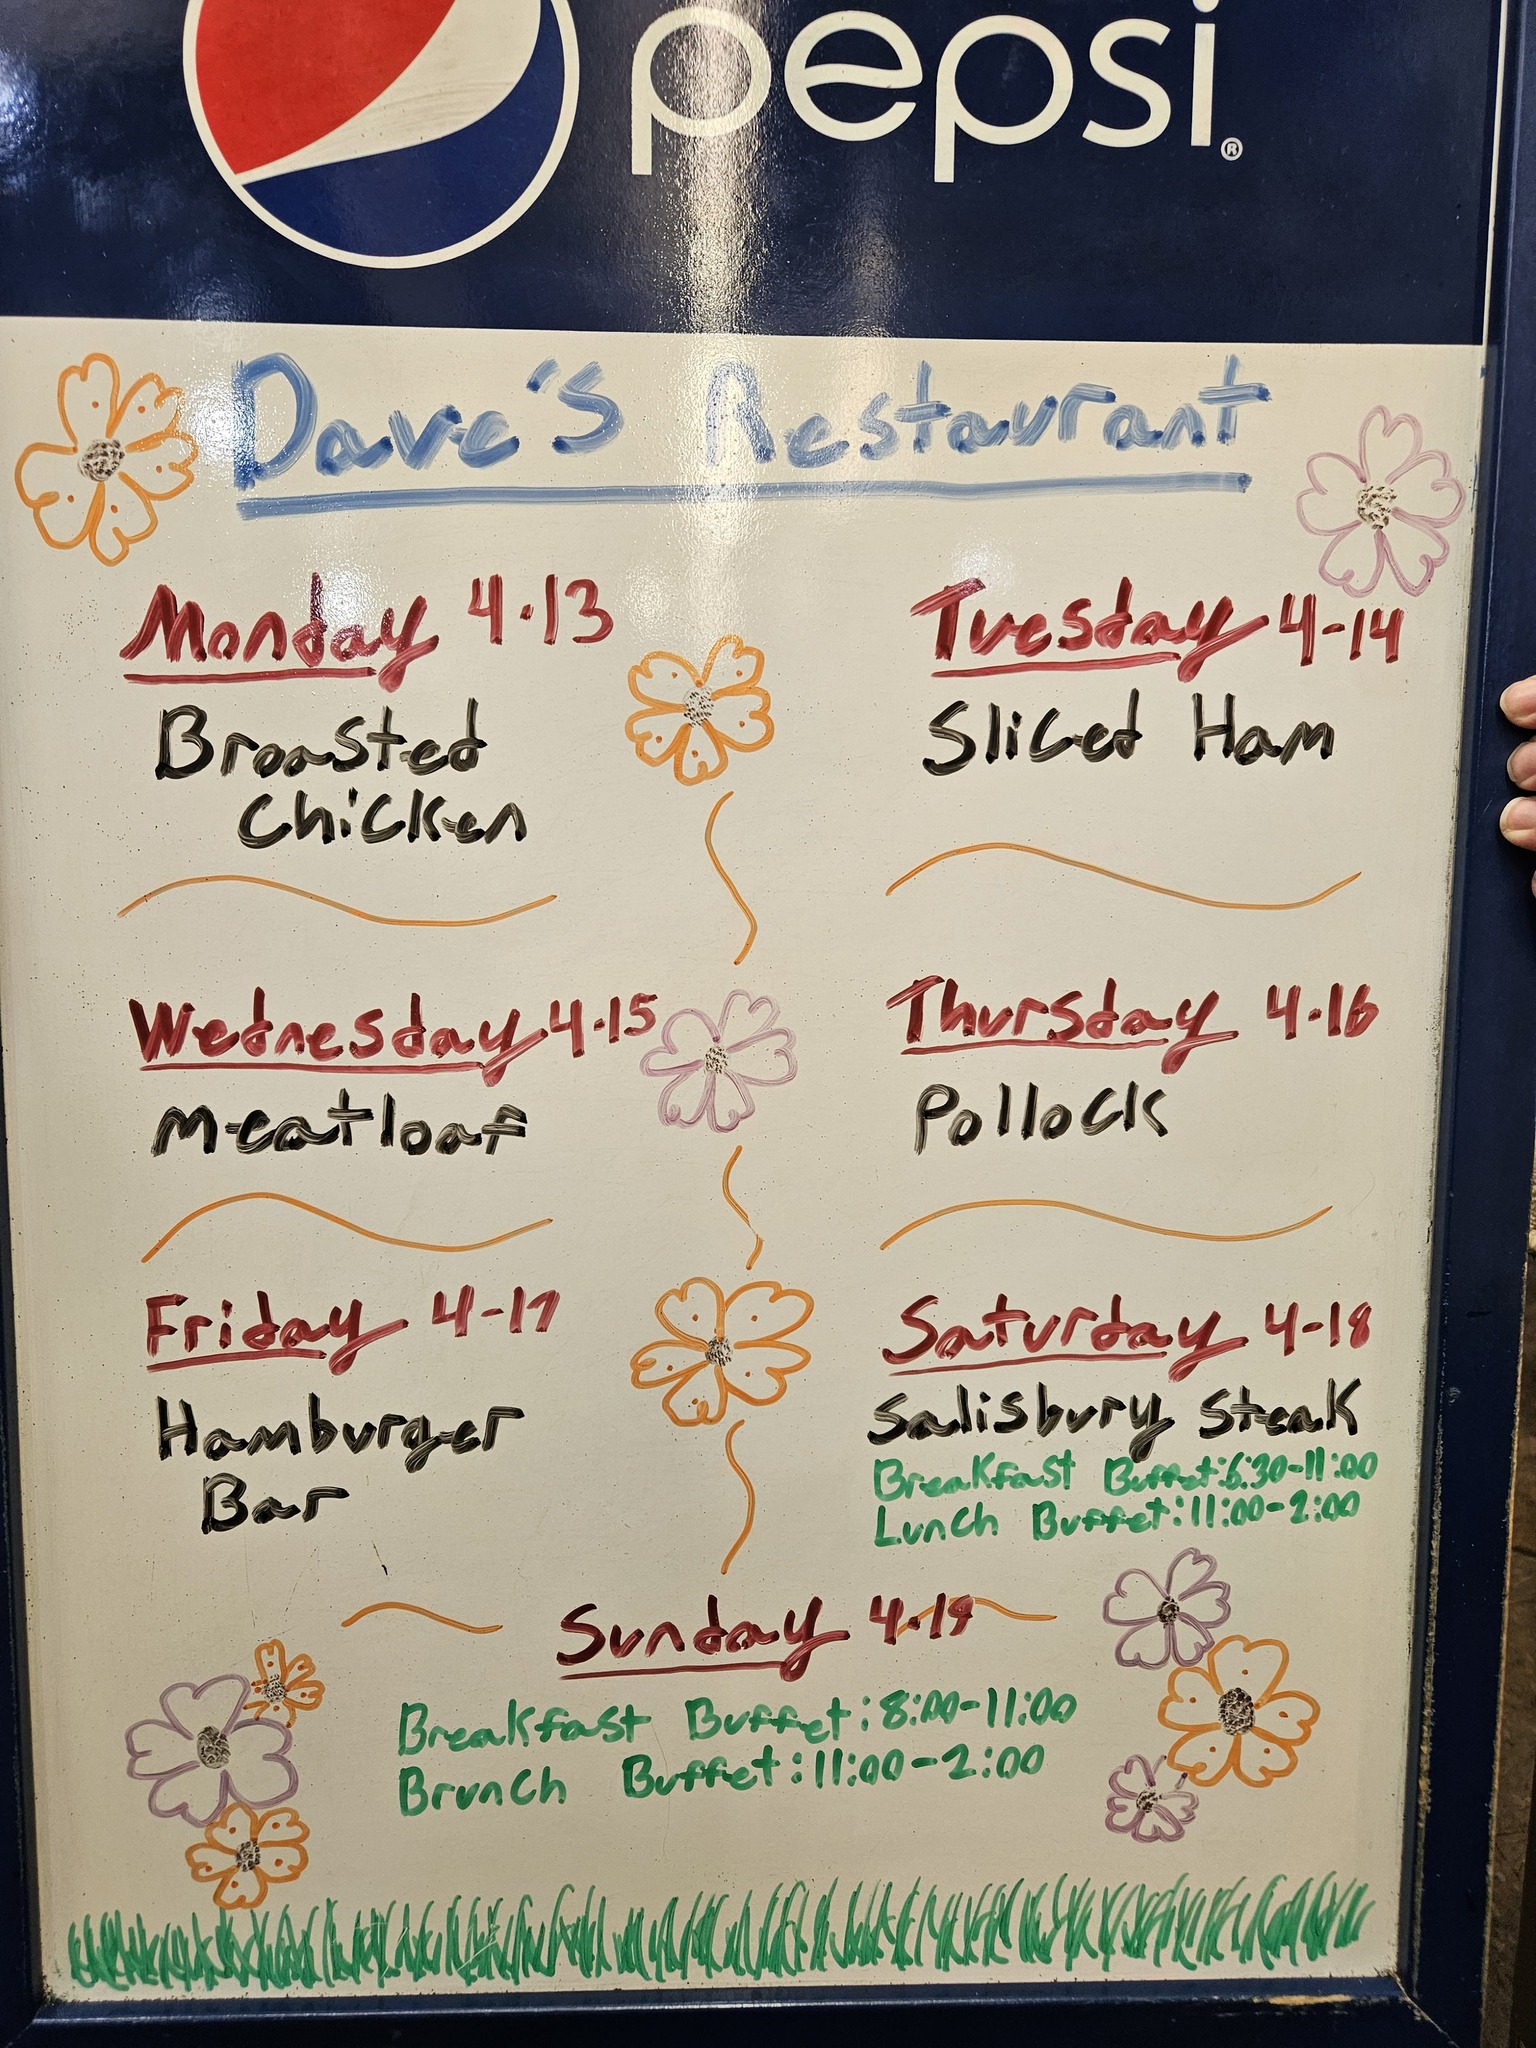 pepsi®
Dave's Restaurant
Monday 4.13
Broasted
Chicken
Tuesday 4-14
Sliced Ham
Wednesday 4.15
Meatloaf
Thursday 4.16
Pollock
Friday 4-17
Hamburger
Bar
Saturday 4-18
Salisbury Steak
Breakfast Buffet:6:30-11:00
Lunch Buffet:11:00-2:00
Sunday 4.19
Breakfast Buffet:8:00-11:00
Brunch Buffet:11:00-2:00